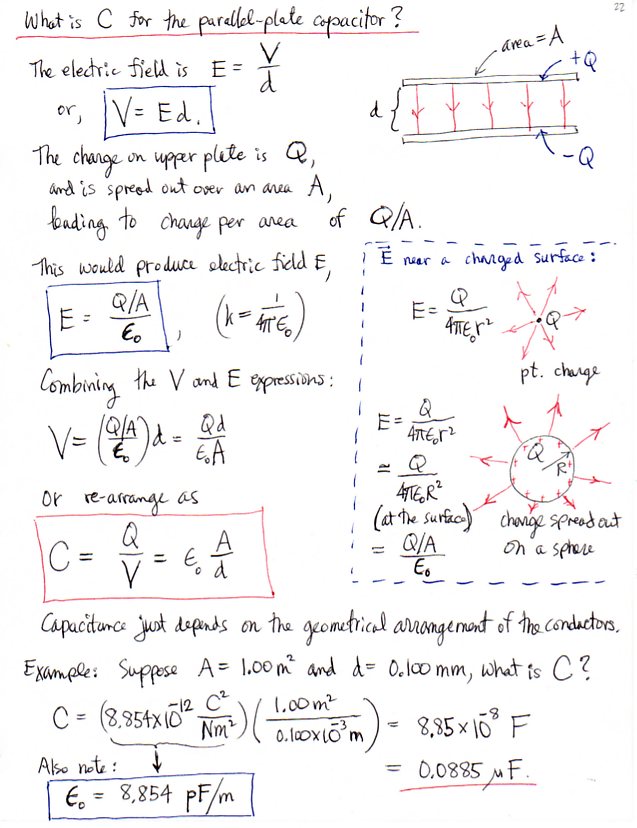 22
What is C for the parallel-plate capacitor?
The electric field is E = V/d
or, V = Ed.
area = A
+Q
d
-Q
The charge on upper plate is Q,
and is spread out over an area A,
leading to charge per area of Q/A.
This would produce electric field E,
E = (Q/A)/ϵ₀ , (k = 1/4πϵ₀)
Combining the V and E expressions:
V = ((Q/A)/ϵ₀) d = Qd/ϵ₀A
Or re-arrange as
C = Q/V = ϵ₀ A/d
E⃗ near a charged surface:
E = Q/4πϵ₀r²
Q
pt. charge
E = Q/4πϵ₀r²
≃ Q/4πϵ₀R²
(at the surface)
= (Q/A)/ϵ₀
Q
R
+ + + + + + + +
charge spread out
on a sphere
Capacitance just depends on the geometrical arrangement of the conductors.
Example: Suppose A = 1.00 m² and d = 0.100 mm, what is C?
C = (8.854×10⁻¹² C²/Nm²)(1.00 m²/0.100×10⁻³ m) = 8.85×10⁻⁸ F
= 0.0885 μF.
Also note:
ϵ₀ = 8.854 pF/m